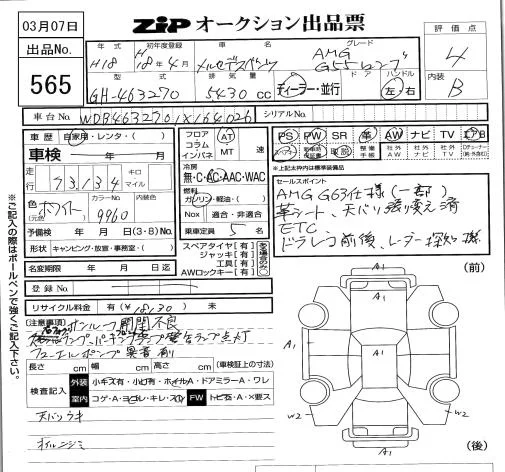 03月07日
ZIP オークション出品票
出品No.
565
年式 初年度登録 車名 グレード
H18 H18年4月 メルセデスベンツ AMG G55ロング
型式 排気量 ドア ハンドル
GH-463270 5430 cc ディーラー・並行 左・右
評価点
4
内装
B
車台No. WDB4632701X164026 シリアルNo.
車歴 自家用・レンタ・( )
車検 年 月
走行 73,134 キロ マイル
色 (元色) ホワイト カラーNo. 9960 内装色
予備検 年 月 日 (3・8) No.
形状 キャンピング・放置・事務室・( )
名変期限 年 月 日迄
登録No.
リサイクル料金 有(¥18130) 未
フロア コラム インパネ AT MT 速
冷房
無・C・AC・AAC・WAC
燃料
ガソリン・軽油・( )
Nox 適合・非適合
乗車定員 5 名
スペアタイヤ[有]
ジャッキ[有]
工具[有]
AWロックキー[有]
PS PW SR 革 AW ナビ TV
スペアキー 新車時保証書 取説 整備手帳 社外AW 社外ナビ 社外TV
*上記太枠内は標準装備品
セールスポイント
AMG G63仕様(一部)
革シート、天バリ張り変え済
ETC
ドラレコ前後、レーダー探知機
(注意事項)
サンルーフ開閉不良
警告ランプ点灯
フューエルポンプ異音有
長さ cm 幅 cm 高さ cm (車検証上の寸法)
検査記入 外装 小キズ有・小凹有・ホイルA・ドアミラーA・ワレ
室内 コゲ・A・ヨゴレ・キレ・スレ FW トビ石・A・×要ス
天バリウキ
オイルニジミ
※ご記入の際はボールペンで強くご記入下さい。
(前)
A1
A1
A1
A1
A1
W2
W2
A1
(後)